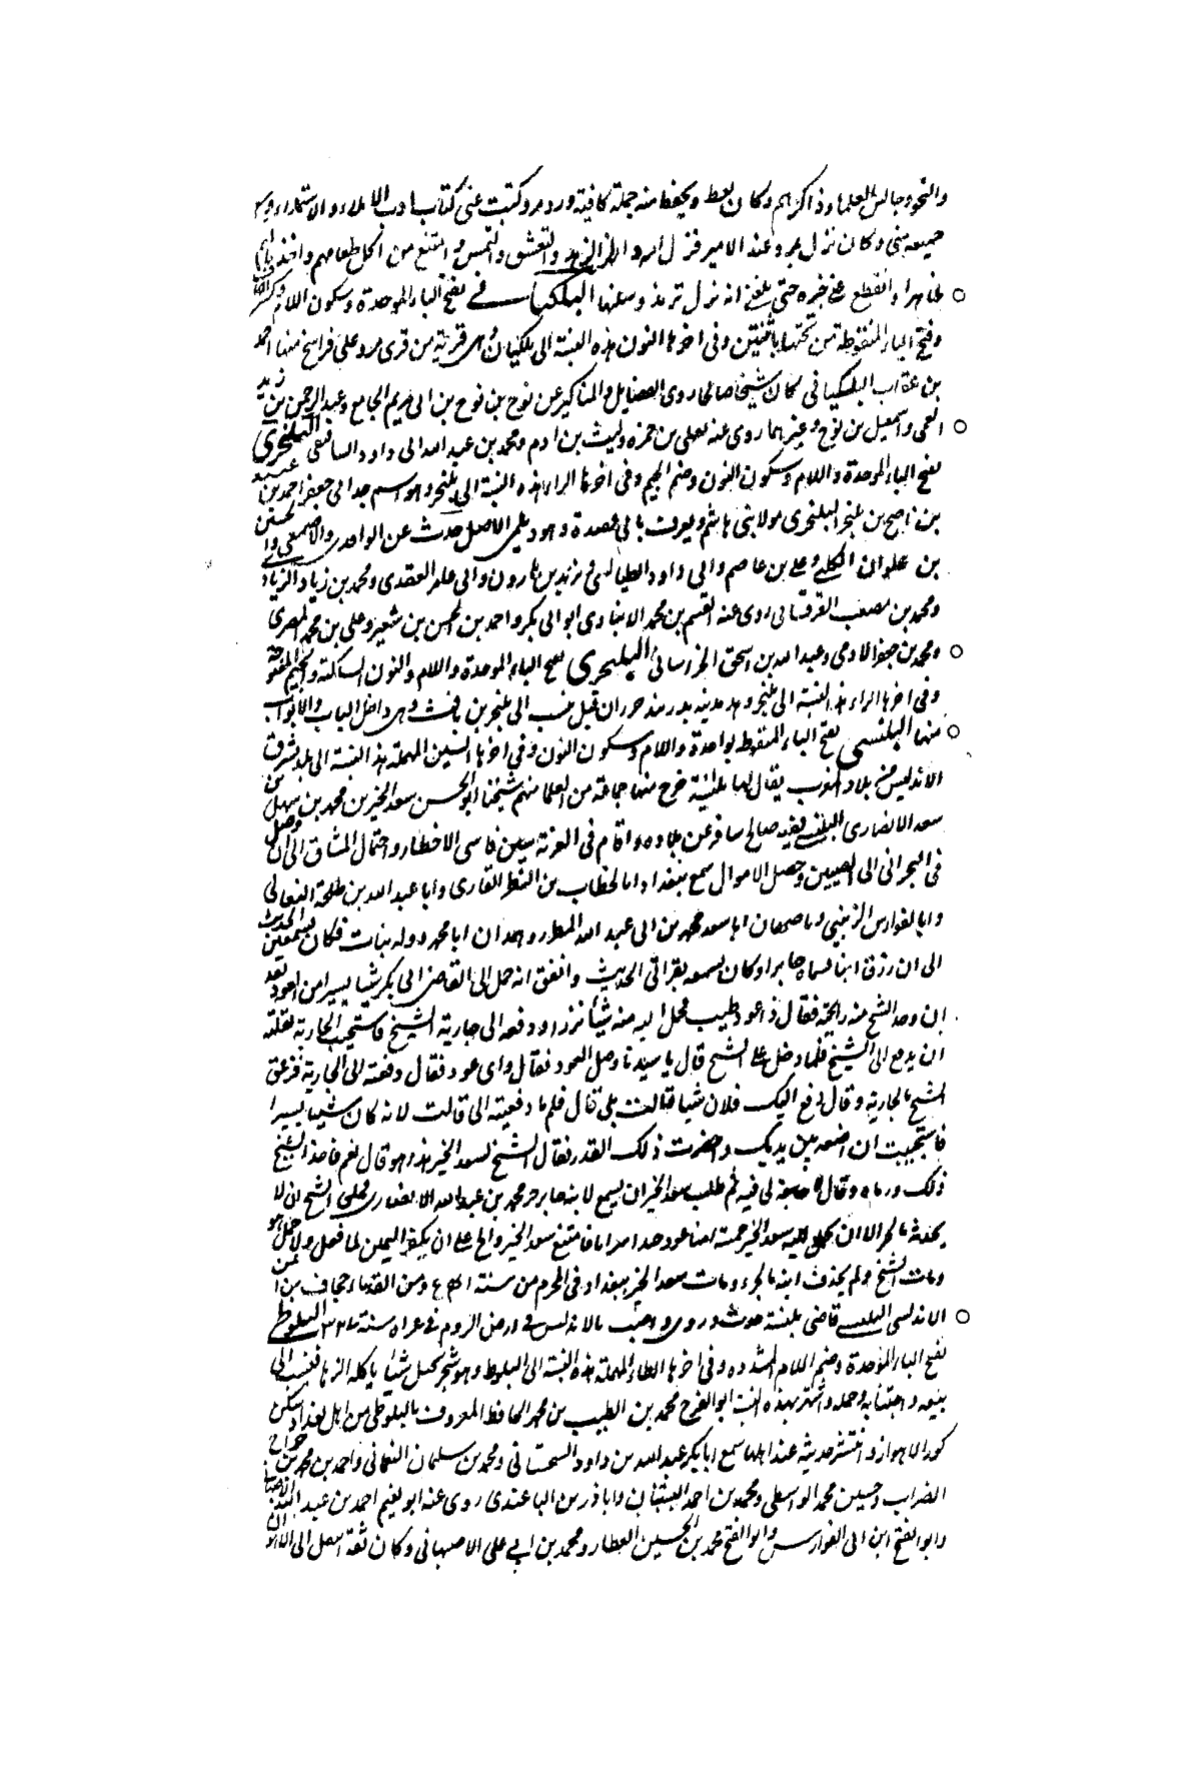 والنحو وجالس العلما وذاكرهم وكان يعظ ويحفظ منه جملة كافية ورد مرو وكتبت عنى كتاب ادب الاملاء والاستملاء
جميعه منى وكان نزل بمرو عند الامير والتعشق والتمس وامتنع من اكل طعامهم واخذ
ظاهرا وانقطع عنى خبره حتى بلغنى انه نزل ترمذ وسكنها البلكيانى بفتح الباء الموحدة وسكون اللام وكسر الكاف
وفتح الياء المنقوطة من تحتها باثنتين وفى اخرها النون هذه النسبة الى بلكيان وهى قرية من قرى مرو على فراسخ منها احمد
بن عتاب البلكيانى كان شيخا صالحا روى الفضايل والمناكير عن نوح بن نوح بن ابى مريم الجامع وعبد الرحمن بن زيد
العمى واسمعيل بن نوح وغيرهما روى عنه يعلى بن حمزه وليث بن ادم ومحمد بن عبد الله ابى داود البلنجرى
بفتح الباء الموحدة واللام وسكون النون وضم الجيم وفى اخرها الراء هذه النسبة الى بلنجر وهو اسم جد ابى جعفر احمد بن عبيد
بن ناصح بن بلنجر البلنجرى مولا بنى هاشم ويعرف بابى عصيدة وهو ديلمى الاصل حدث عن الواقدى والاصمعى والحسين
بن علوان الكلبى وعلى بن عاصم وابى داود الطيالسى ويزيد بن هارون وابى عامر العقدى ومحمد بن زياد الزيادى
ومحمد بن مصعب القرقسانى روى عنه القسم بن محمد الانبارى ابو ابى بكر واحمد بن الحسن بن شهير وعلى بن محمد المصرى
ومحمد بن جعفر الادمى وعبد الله بن اسحق الخراسانى البلنجرى بفتح الباء الموحدة واللام والنون الساكنة والجيم المفتوحة
وفى اخرها الراء هذه النسبة الى بلنجر وهى مدينة بدربند خزران قيل نسب الى بلنجر بن يافث وهى داخل الباب والابواب
منها البلنسى بفتح الباء المنقوطة بواحدة واللام وسكون النون وفى اخرها السين المهملة هذه النسبة الى بلد بشرق
الاندلس من بلاد المغرب يقال لها بلنسية خرج منها جماعة من العلما منهم شيخنا ابو الحسن سعد الخير بن محمد بن سهل بن
سعد الانصارى البلنسى فقيه صالح سافر عن بلاده واقام فى الغربة سنين قاسى الاخطار واحتمال المشاق الى ان وصل
فى البحر الى الصين وحصل الاموال سمع ببغداد ابا الخطاب بن البطر القارى وابا عبد الله بن طلحة النعالى
وابا الفوارس الزينبى وباصبهان ابا سعد محمد بن ابى عبد الله المطرز وهمدان ابا محمد وولد بنات فكان يسمعهن الحديث
الى ان رزق ابنا سماه جابرا وكان يسمعه بقراتى الحديث واتفق انه حمل الى القاضى ابى بكر شيا يسيرا من العود بعد
ان وجد الشيخ منه رايحته فقال ذا عود طيب فحمل اليه منه شيأ نزرا ودفعه الى جارية الشيخ فاستحيت الجارية لقلته
ان يدفع الى الشيخ فلما دخل على الشيخ قال يا سيدنا وصل العود فقال واى عود فقال دفعته الى الجارية فزعق
الشيخ بالجارية وقال دفع اليك فلان شيا فقالت بلى قال فلم ما دفعتيه الى قالت لانه كان شيا يسيرا
فاستحييت ان اضعه بين يديك واحضرت ذلك القدر فقال الشيخ لسعد الخير هذا هو قال نعم فاخذ الشيخ
ذلك ورماه وقال لا حاجة لى فيه ثم طلب سعد الخير ان يسمع لابنه جابر جزء محمد بن عبد الله الانصارى فحلف الشيخ ان لا
يحدثه بالجزء الا ان يحمل اليه سعد الخير خمسة امنا عودا فامتنع سعد الخير والح على ان يكفر اليمين لما فعل ولا حمل هو
ومات الشيخ ولم يحدث ابنه بالجزء ومات سعد الخير ببغداد فى المحرم من سنة ومن القدما جحاف بن يمن
الاندلسى البلنسى قاضى بلنسية حدث وروى بالاندلس فى ارض الروم فى غزاه سنة ٣٢٧ البلوطى
بفتح الباء الموحدة وضم اللام المشددة وفى اخرها الطاء المهملة هذه النسبة الى البلوط وهو شجر يحمل شيأ ياكله الزهاد فنسب الى
بيعه واجتنابه وحمله واشتهر بهذه النسبة ابو الفرج محمد بن الطيب بن محمد الحافظ المعروف بالبلوطى من اهل بغداد سكن
كور الاهواز وانتشر حديثه عند اهلها سمع ابا بكر عبد الله بن داود السجستانى ومحمد بن سلمان النعمانى واحمد بن محمد بن جراح
الضراب وحسين محمد الواسطى ومحمد بن احمد وابا ذر بن الباغندى روى عنه ابو نعيم احمد بن عبد الله الاصبهانى
وابو الفتح ابن ابى الفوارس وابو الفتح محمد بن الحسين العطار ومحمد بن ابى على الاصبهانى وكان ثقة انتقل الى الاهواز